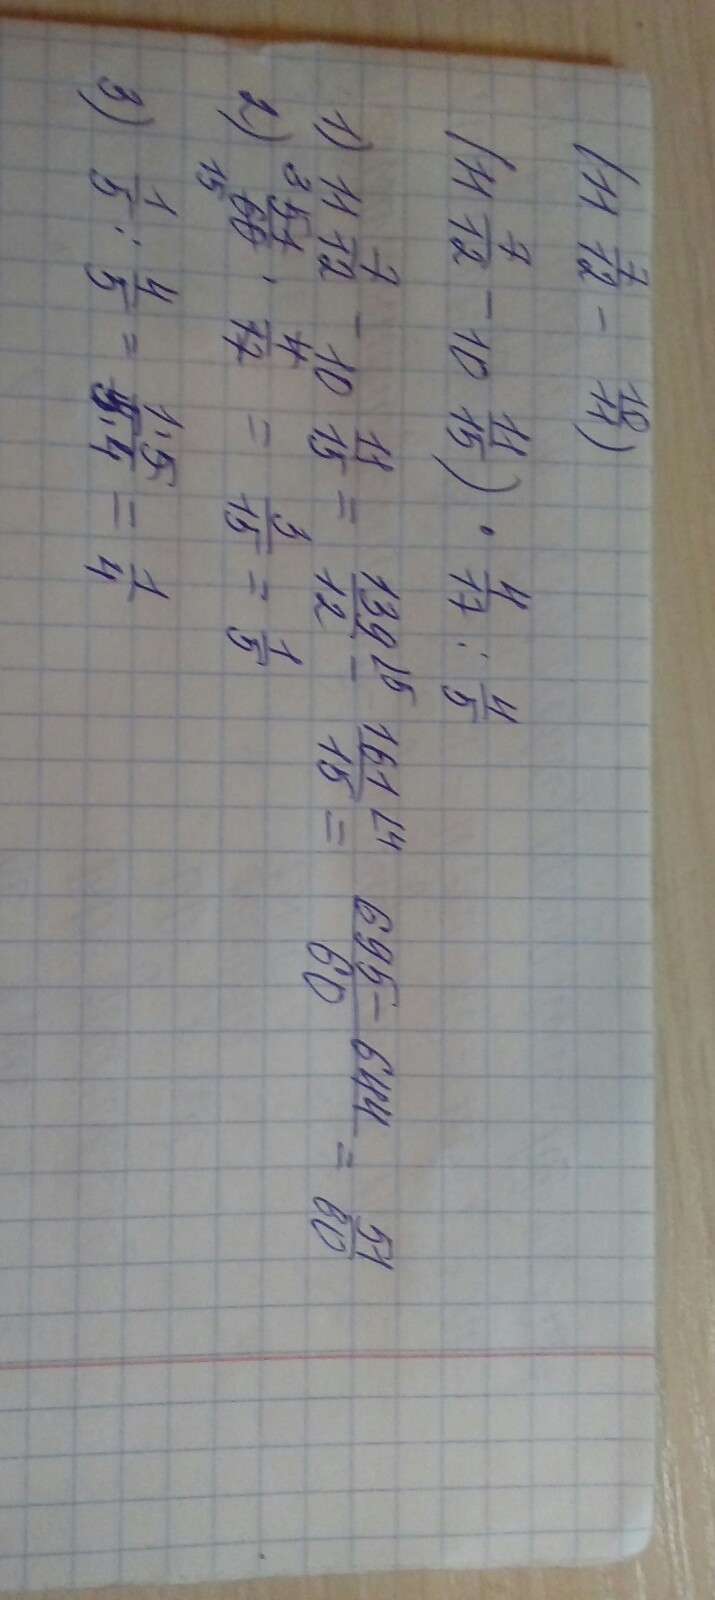 (11 7/12 - 10/11)
(11 7/12 - 10 11/15) · 4/17 : 4/5
1) 11 7/12 - 10 11/15 = 139/12 ⌊5 - 161/15 ⌊4 = 695-644/60 = 51/60
2) 3 51/60 15 · 4/17 = 3/15 = 1/5
3) 1/5 : 4/5 = 1·5/5·4 = 1/4